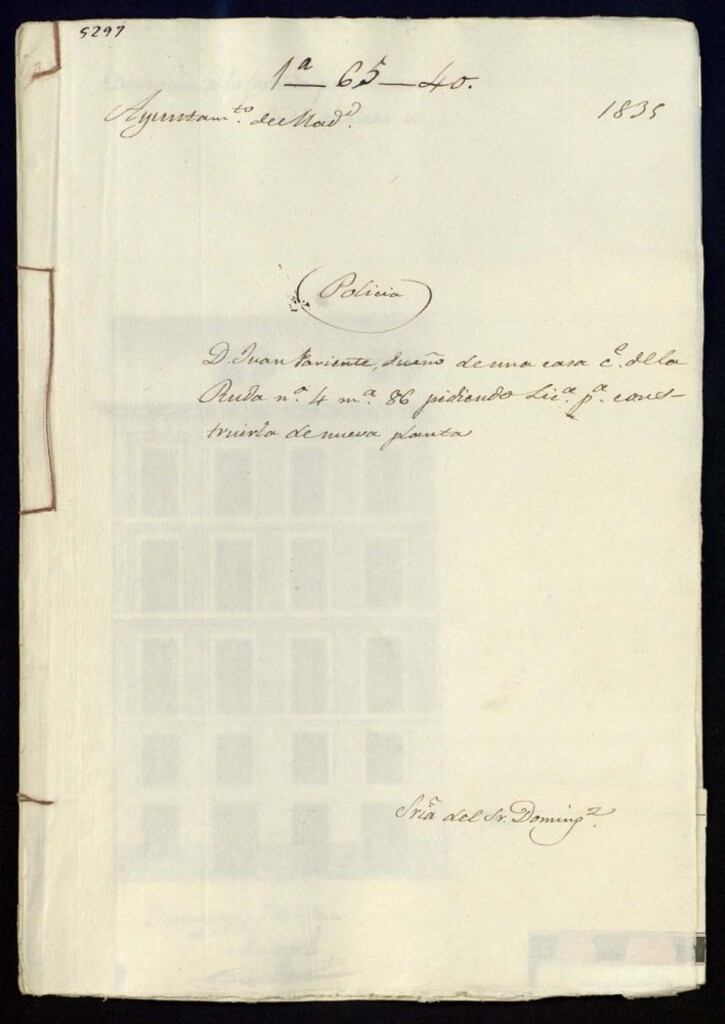 5297
1ª — 65 — 40.
Ayuntam.to de Mad.d
1835
Policia
D. Juan Pariente, dueño de una casa c.e de la
Ruda n.º 4 m.ª 86 pidiendo Lic.ª p.ª cons-
truirla de nueva planta
Sría del Sr. Doming.z